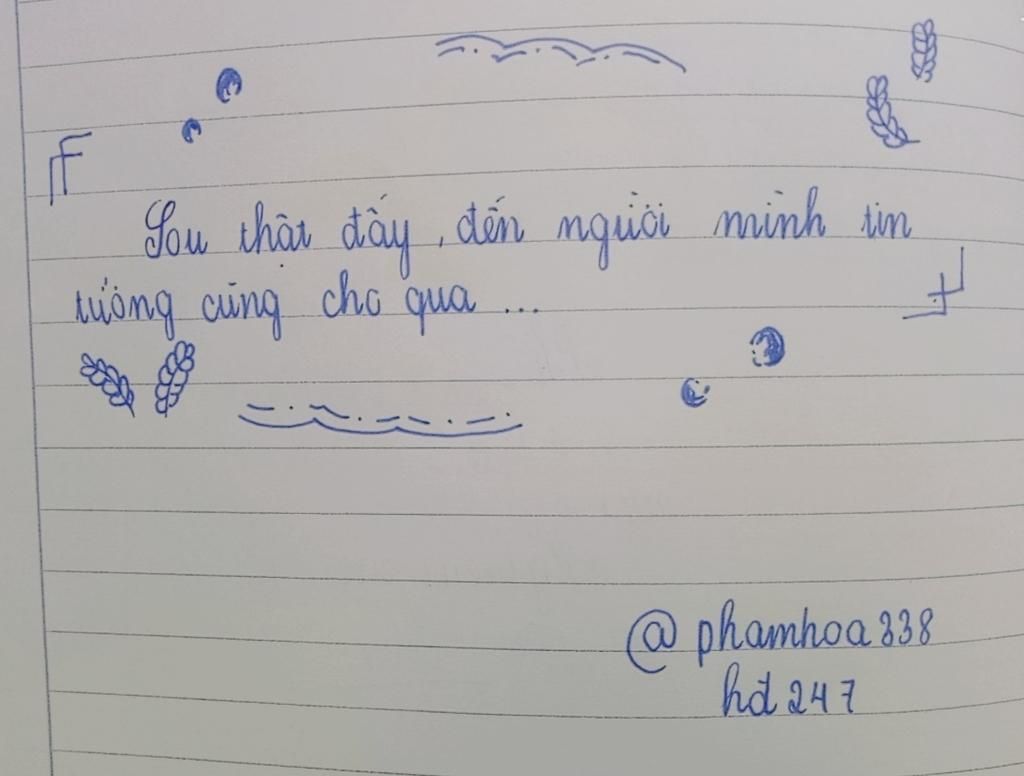 Sou thật đấy, đến người mình tin
tưởng cũng cho qua ...
@phamhoa338
hd247